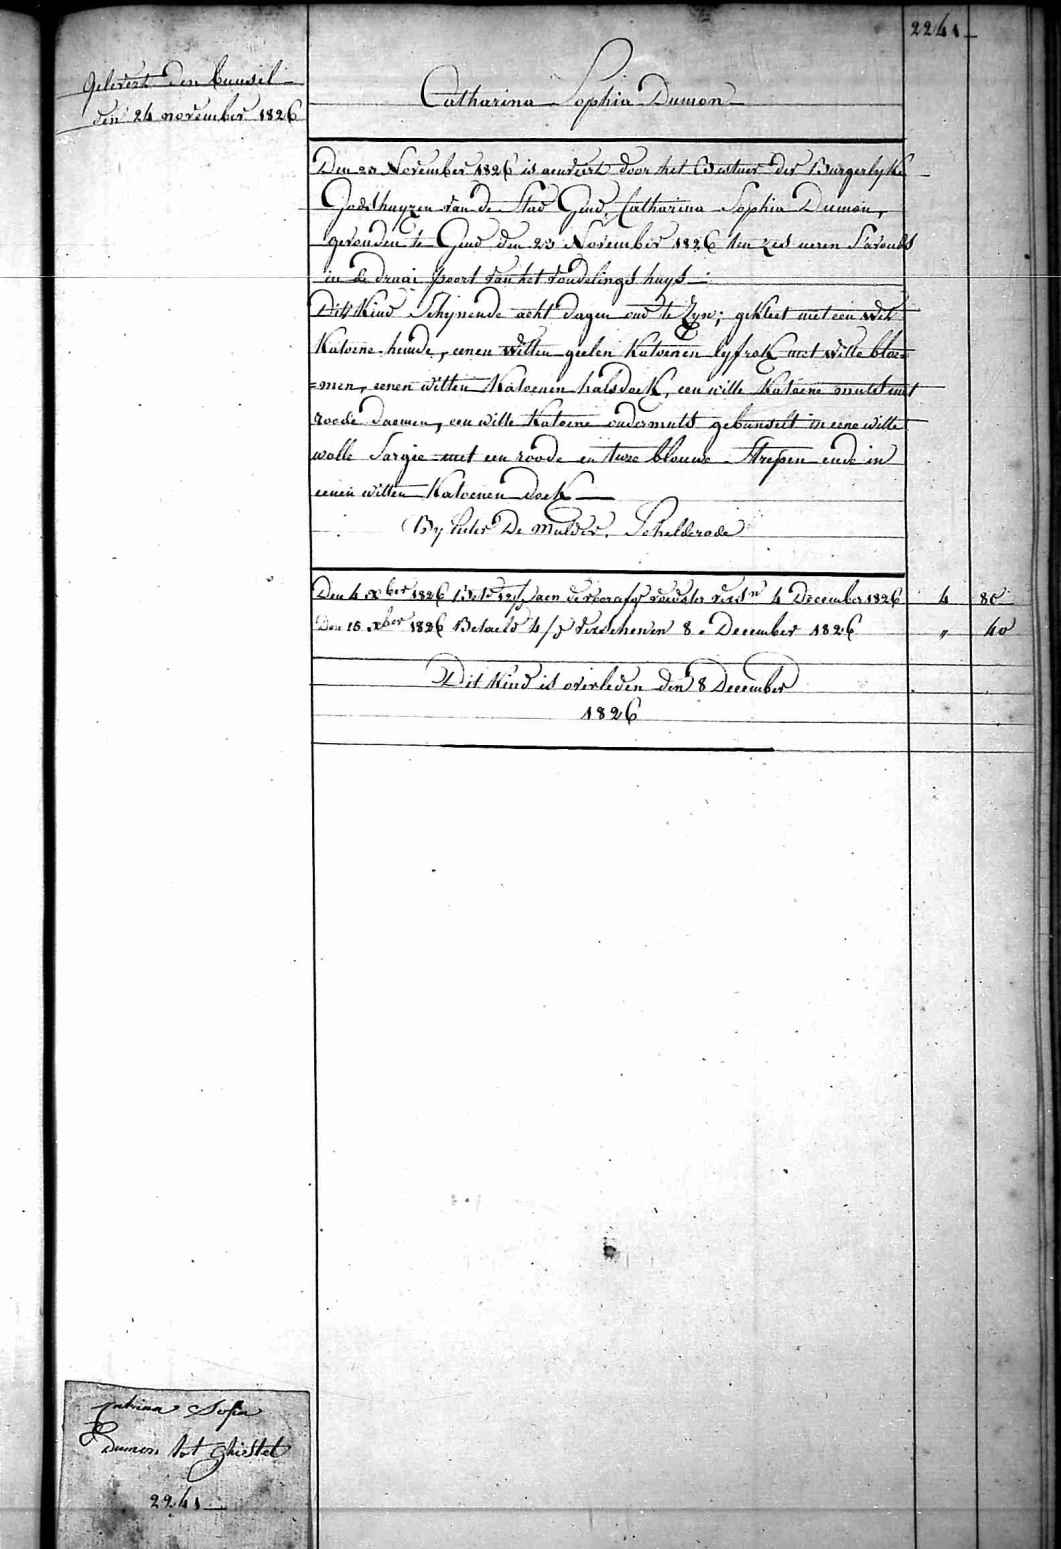 2241
Gelevert den bunsel
den 24 november 1826
Catharina Sophia Dumon
Den 23 November 1826 is aenveert door het Bestuer der Burgerlyke
Godshuyzen van de Stad Gend, Catharina Sophia Dumon,
gevonden te Gend den 23 November 1826 ten zes ueren s'avonds
in de draai poort van het vondelings huys
Dit Kind Schynende acht dagen oud te Zyn; gekleet met een wit
Katoene hemde, eenen witten geelen Katoenen lyfrok met witte bloe=
=men, eenen witten Katoenen halsdoek, een witte Katoene muts met
roode daemen, een witte Katoene ondermuts gebunselt in eene witte
wolle Sargie met een roode en twee blouwe Strepen ende in
eenen witten Katoenen doek
By Pieter De Mulder, Schelderode
Den 4 xber 1826 aen de 4 December 1826 4 80
Den 18 xber 1826 Betaeld 4/ verschenen 8 December 1826 " 40
Dit Kind is overleden den 8 December
1826
Catrina Sofia
Dumon tot Ghistel
2241